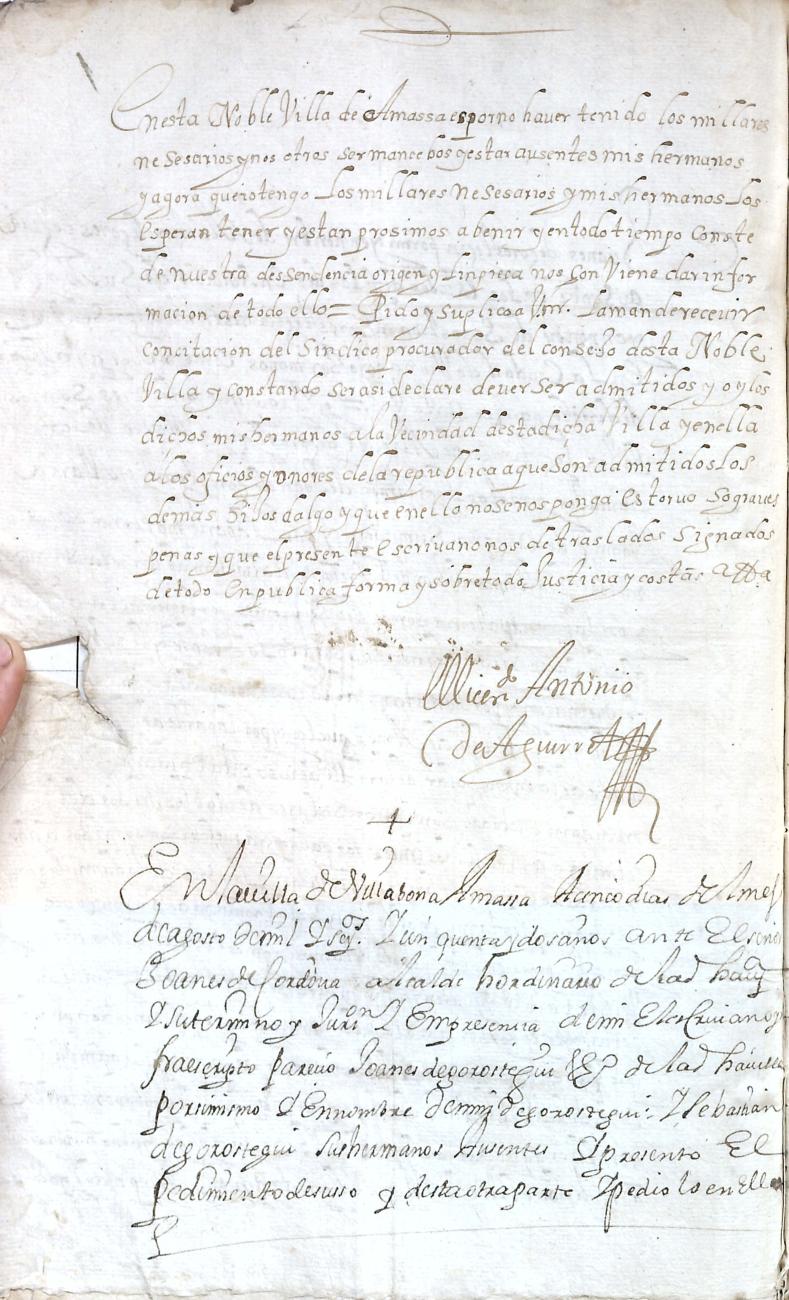 En esta Noble Villa de Amassa es por no haver tenido los millares
nesesarios y nos otros ser mancebos y estar ausentes mis hermanos
y agora que io tengo los millares nesesarios y mis hermanos los
esperan tener y estan prosimos a benir y en todo tiempo conste
de nuestra dessendencia origen y linpieça nos conviene dar infor
macion de todo ello = Pido y suplico a Vm. la mande recevir
con citacion del Sindico procurador del consejo desta Noble
Villa y constando ser asi declare dever ser admitidos yo y los
dichos mis hermanos a la vecindad desta dicha Villa y en ella
a los oficios y onores de la republica a que son admitidos los
demas hijos dalgo y que en ello no se nos ponga estorvo so graves
penas y que el presente escrivano nos de traslados signados
de todo en publica forma y sobre todo Justicia y costas
Licen.do Antonio
de Aguirre
+
En la villa de Villabona Amassa a cinco dias del mes
de agosto de mil y seys.os y cinquenta y dos años ante el señor
Joanes de Cordova alcalde hordinario de la d ha villa
y su termino y Juron y en presencia de mi el escrivano yn
fraescripto parecio Joanes de gorostegui v.o de la d ha villa
por si mismo y en nombre de de gorostegui y Sebastian
de gorostegui sus hermanos ausentes y presento el
pedimento de suso y desta otra parte y pedio lo en ello